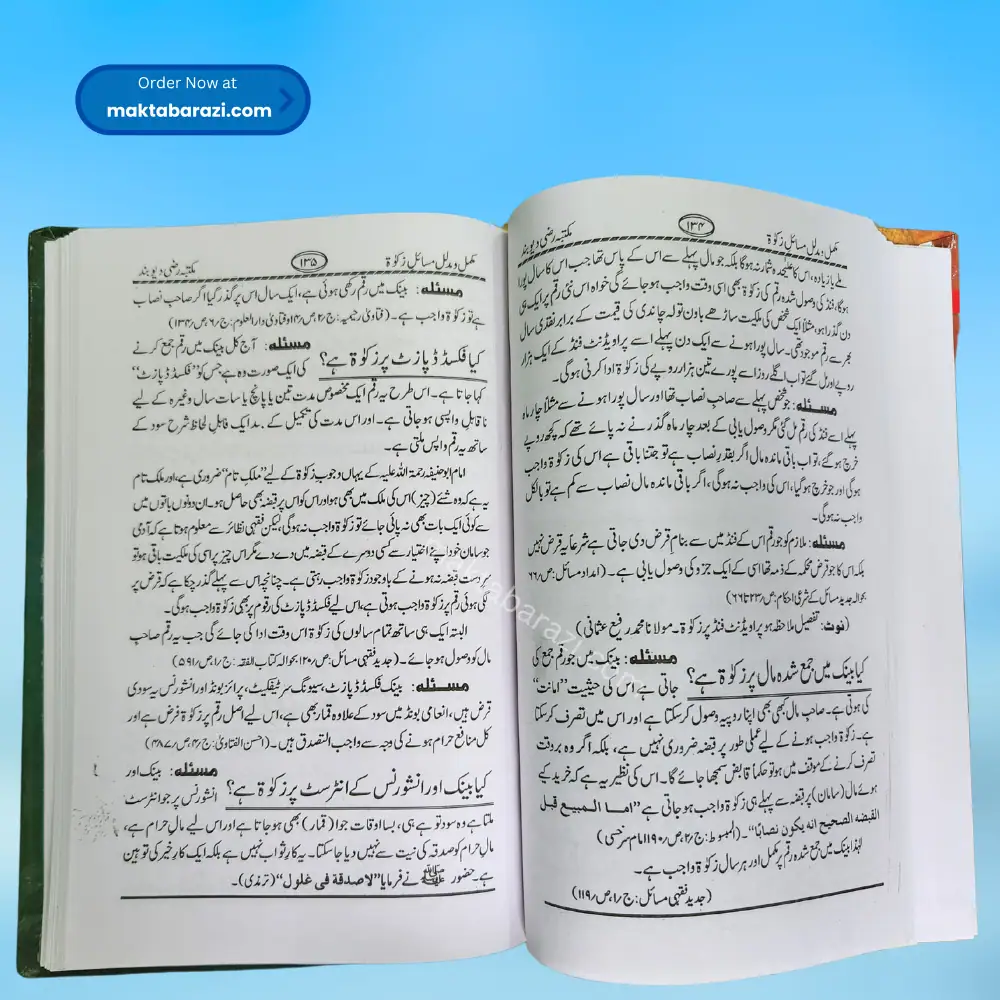 Order Now at
maktabarazi.com
مکمل و مدلل مسائل زکوٰۃ
۱۳۴
مکتبہ رضی دیوبند
ملے یا زیادہ، اس کا علیحدہ شمار نہ ہوگا بلکہ جو مال پہلے سے اس کے پاس تھا جب اس کا سال پورا
ہوگا، فنڈ کی وصول شدہ رقم کی زکوٰۃ بھی اسی وقت واجب ہو جائے گی خواہ اس نئی رقم پر ایک ہی
دن گذرا ہو، مثلاً ایک شخص کی ملکیت ساڑھے باون تولہ چاندی کی قیمت کے برابر نقدی سال
بھر سے رقم موجود تھی۔ سال پورا ہونے سے ایک دن پہلے اسے پراویڈنٹ فنڈ کے ایک ہزار
روپے اور مل گئے تو اب اگلے روز اسے پورے تین ہزار روپے کی زکوٰۃ ادا کرنی ہوگی۔
مسئلہ: جو شخص پہلے سے صاحب نصاب تھا اور سال پورا ہونے سے مثلاً چار ماہ
پہلے اسے فنڈ کی رقم مل گئی مگر وصول یابی کے بعد چار ماہ گذرنے نہ پائے تھے کہ کچھ روپے
خرچ ہو گئے، تو اب باقی ماندہ مال اگر بقدر نصاب ہے تو جتنا باقی ہے اس کی زکوٰۃ واجب
ہوگی اور جو خرچ ہو گیا، اس کی واجب نہ ہوگی، اگر باقی ماندہ مال نصاب سے کم ہے تو بالکل
واجب نہ ہوگی۔
مسئلہ: ملازم کو جو رقم اس کے فنڈ میں سے بنام قرض دی جاتی ہے شرعاً یہ قرض نہیں
بلکہ اس کا جو قرض محکمہ کے ذمہ تھا اسی کے ایک جزو کی وصول یابی ہے۔ (امداد مسائل: ص؍۶۶
بحوالہ جدید مسائل کے شرعی احکام: ص؍۲۳ تا ۶۶)
(نوٹ: تفصیل ملاحظہ ہو پراویڈنٹ فنڈ پر زکوٰۃ۔ مولانا محمد رفیع عثمانی)
کیا بینک میں جمع شدہ مال پر زکوٰۃ ہے؟ مسئلہ: بینک میں جو رقم جمع کی
جاتی ہے اس کی حیثیت ”امانت“
کی ہوتی ہے۔ صاحب مال بھی بھی اپنا روپیہ وصول کر سکتا ہے اور اس میں تصرف کر سکتا
ہے۔ زکوٰۃ واجب ہونے کے لیے عملی طور پر قبضہ ضروری نہیں ہے، بلکہ اگر وہ بروقت
تصرف کرنے کے موقف میں ہو تو حکماً قابض سمجھا جائے گا۔ اس کی نظیر یہ ہے کہ خرید کیے
ہوئے مال (سامان) پر قبضہ سے پہلے ہی زکوٰۃ واجب ہو جاتی ہے ”اما المبیع قبل
القبضه الصحیح انه یکون نصابًا“۔ (المبسوط: ج؍۲، ص؍۱۹۰ امام سرخسی)
لہٰذا بینک میں جمع شدہ رقم پر مکمل اور ہر سال زکوٰۃ واجب ہے۔
(جدید فقہی مسائل: ج؍۱، ص؍۱۱۹)
مکمل و مدلل مسائل زکوٰۃ
۱۳۵
مکتبہ رضی دیوبند
مسئلہ: بینک میں رقم رکھی ہوئی ہے، ایک سال اس پر گذر گیا اگر صاحب نصاب
ہے تو زکوٰۃ واجب ہے۔ (فتاویٰ رحیمیہ: ج؍۲، ص؍۱۴ و فتاویٰ دارالعلوم: ج؍۶، ص؍۱۳۴)
کیا فکسڈ ڈپازٹ پر زکوٰۃ ہے؟ مسئلہ: آج کل بینک میں رقم جمع کرنے
کی ایک صورت وہ ہے جس کو ”فکسڈ ڈپازٹ“
کہا جاتا ہے۔ اس طرح یہ رقم ایک مخصوص مدت تین یا پانچ یا سات سال وغیرہ کے لیے
ناقابل واپسی ہو جاتی ہے۔ اور اس مدت کی تکمیل کے بعد ایک قابل لحاظ شرح سود کے
ساتھ یہ رقم واپس ملتی ہے۔
امام ابوحنیفہ رحمۃ اللہ علیہ کے یہاں وجوب زکوٰۃ کے لیے ”ملکِ تام“ ضروری ہے، اور ملک تام
یہ ہے کہ وہ شئے (چیز) اس کی ملک میں بھی ہو اور اس کو اس پر قبضہ بھی حاصل ہو۔ ان دونوں باتوں میں
سے کوئی ایک بات بھی نہ پائی جائے تو زکوٰۃ واجب نہ ہوگی، لیکن فقہی نظائر سے معلوم ہوتا ہے کہ آدمی
جو سامان خود اپنے اختیار سے کسی دوسرے کے قبضہ میں دے دے مگر اس چیز پر اسی کی ملکیت باقی ہو تو
بر دست قبضہ نہ ہونے کے باوجود زکوٰۃ واجب رہتی ہے۔ چنانچہ اس سے پہلے گذر چکا ہے کہ قرض پر
لگی ہوئی رقم پر زکوٰۃ واجب ہوتی ہے، اس لیے فکسڈ ڈپازٹ کی رقوم پر بھی زکوٰۃ واجب ہوگی۔
البتہ ایک ہی ساتھ تمام سالوں کی زکوٰۃ اس وقت ادا کی جائے گی جب یہ رقم صاحب
مال کو وصول ہو جائے۔ (جدید فقہی مسائل: ص؍۱۲۰ بحوالہ کتاب الفقہ: ج؍۱، ص؍۵۹۱)
مسئلہ: بینک فکسڈ ڈپازٹ، سیونگ سرٹیفکیٹ، پرائز بونڈ اور انشورنس یہ سودی
قرض ہیں، انعامی بونڈ میں سود کے علاوہ قمار بھی ہے، اس لیے اصل رقم پر زکوٰۃ فرض ہے اور
کل منافع حرام ہونے کی وجہ سے واجب التصدق ہیں۔ (احسن الفتاویٰ: ج؍۴، ص؍۴۸۷)
کیا بینک اور انشورنس کے انٹرسٹ پر زکوٰۃ ہے؟ مسئلہ: بینک اور
انشورنس پر جو انٹرسٹ
ملتا ہے وہ سود تو ہے ہی، بسا اوقات جوا (قمار) بھی ہو جاتا ہے اور اس لیے مال حرام ہے،
مال حرام کو صدقہ کی نیت سے نہیں دیا جا سکتا۔ یہ کار ثواب نہیں ہے بلکہ ایک کار خیر کی توہین
ہے۔ حضور ﷺ نے فرمایا ”لا صدقة فی غلول“ (ترمذی)۔
maktabarazi.com